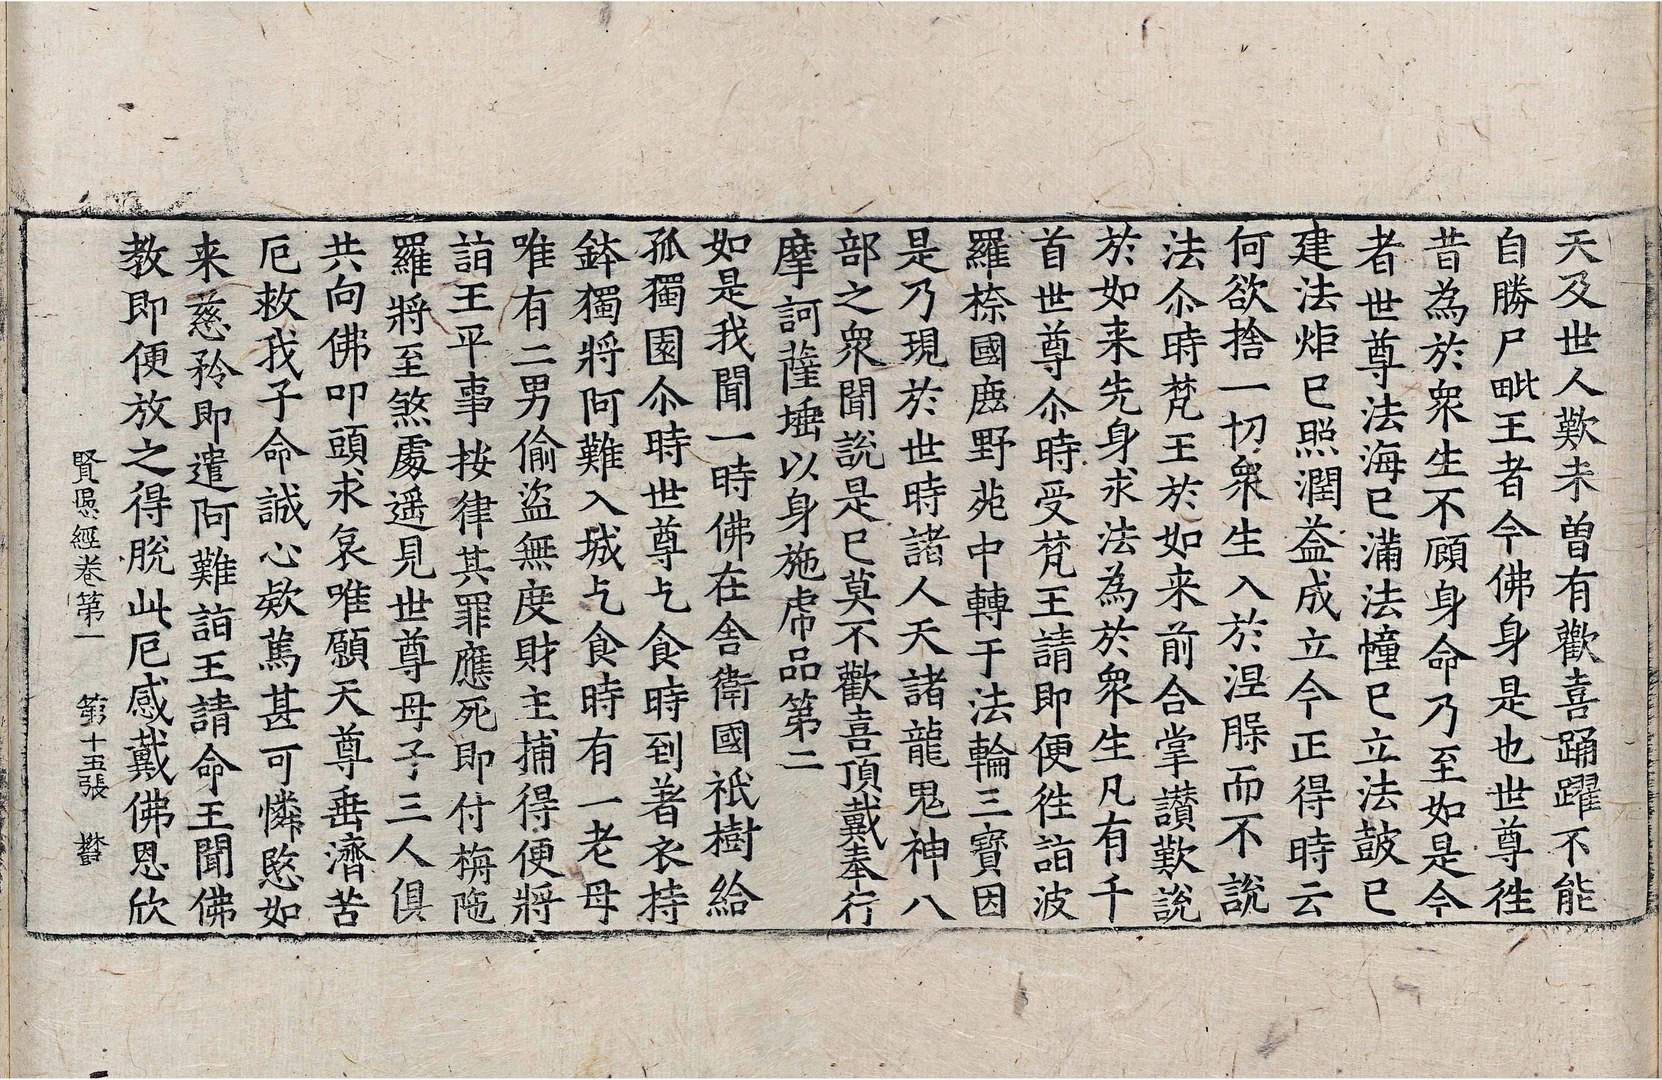 天及世人歎未曽有歡喜踊躍不能
自勝尸毗王者今佛身是也世尊徃
昔為於衆生不顧身命乃至如是今
者世尊法海已滿法幢已立法皷已
建法炬已照潤益成立今正得時云
何欲捨一切衆生入於涅脲而不說
法尒時梵王於如来前合掌讃歎說
於如来先身求法為於衆生凡有千
首世尊尒時受梵王請即便徃詣波
羅㮈國鹿野苑中轉于法輪三寶因
是乃現於世時諸人天諸龍鬼神八
部之衆聞說是已莫不歡喜頂戴奉行
摩訶薩埵以身施虎品第二
如是我聞一時佛在舍衛國祇樹給
孤獨園尒時世尊乞食時到著衣持
鉢獨將阿難入城乞食時有一老母
唯有二男偷盜無度財主捕得便將
詣王平事按律其罪應死即付栴陁
羅將至煞處遥見世尊母子三人俱
共向佛叩頭求哀唯願天尊垂濟苦
厄救我子命誠心欵篤甚可憐愍如
来慈矜即遣阿難詣王請命王聞佛
教即便放之得脫此厄感戴佛恩欣
賢愚經卷第一　第十五張